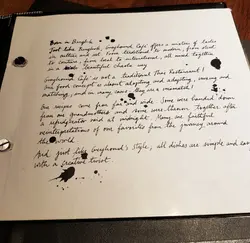 Born in Bangkok
Just like Bangkok, Greyhound Café offers a mixture of tastes
in culture and food from traditional to modern, from street
to couture, from local to international, all mixed together
in a beautiful chaotic way
Greyhound Café is not a traditional Thai Restaurant!
Our food concept is about adapting and adopting, mixing and
matching, and in many cases, they are a mismatch!
Our recipes come from far and wide. Some were handed down
from our grandmothers and some were thrown together after
a refridgerator raid at midnight. Many are faithful
reinterpretations of our favorites from the journey around
the world
And just like Greyhound's Style, all dishes are simple and
with a creative twist.